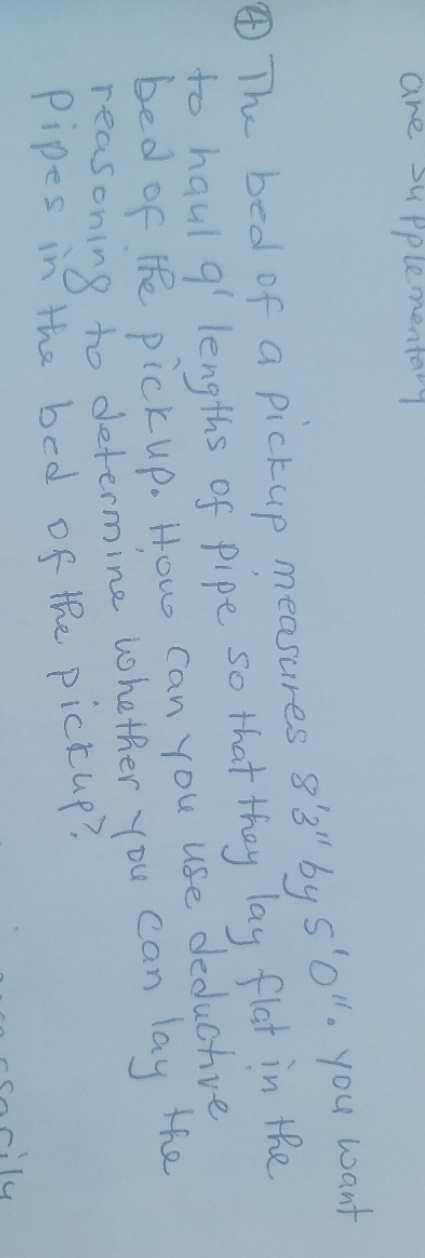 are supplementary
④ The bed of a pickup measures 8'3" by 5'0". You want
to haul 9' lengths of pipe so that they lay flat in the
bed of the pickup. How can you use deductive
reasoning to determine whether you can lay the
pipes in the bed of the pickup?